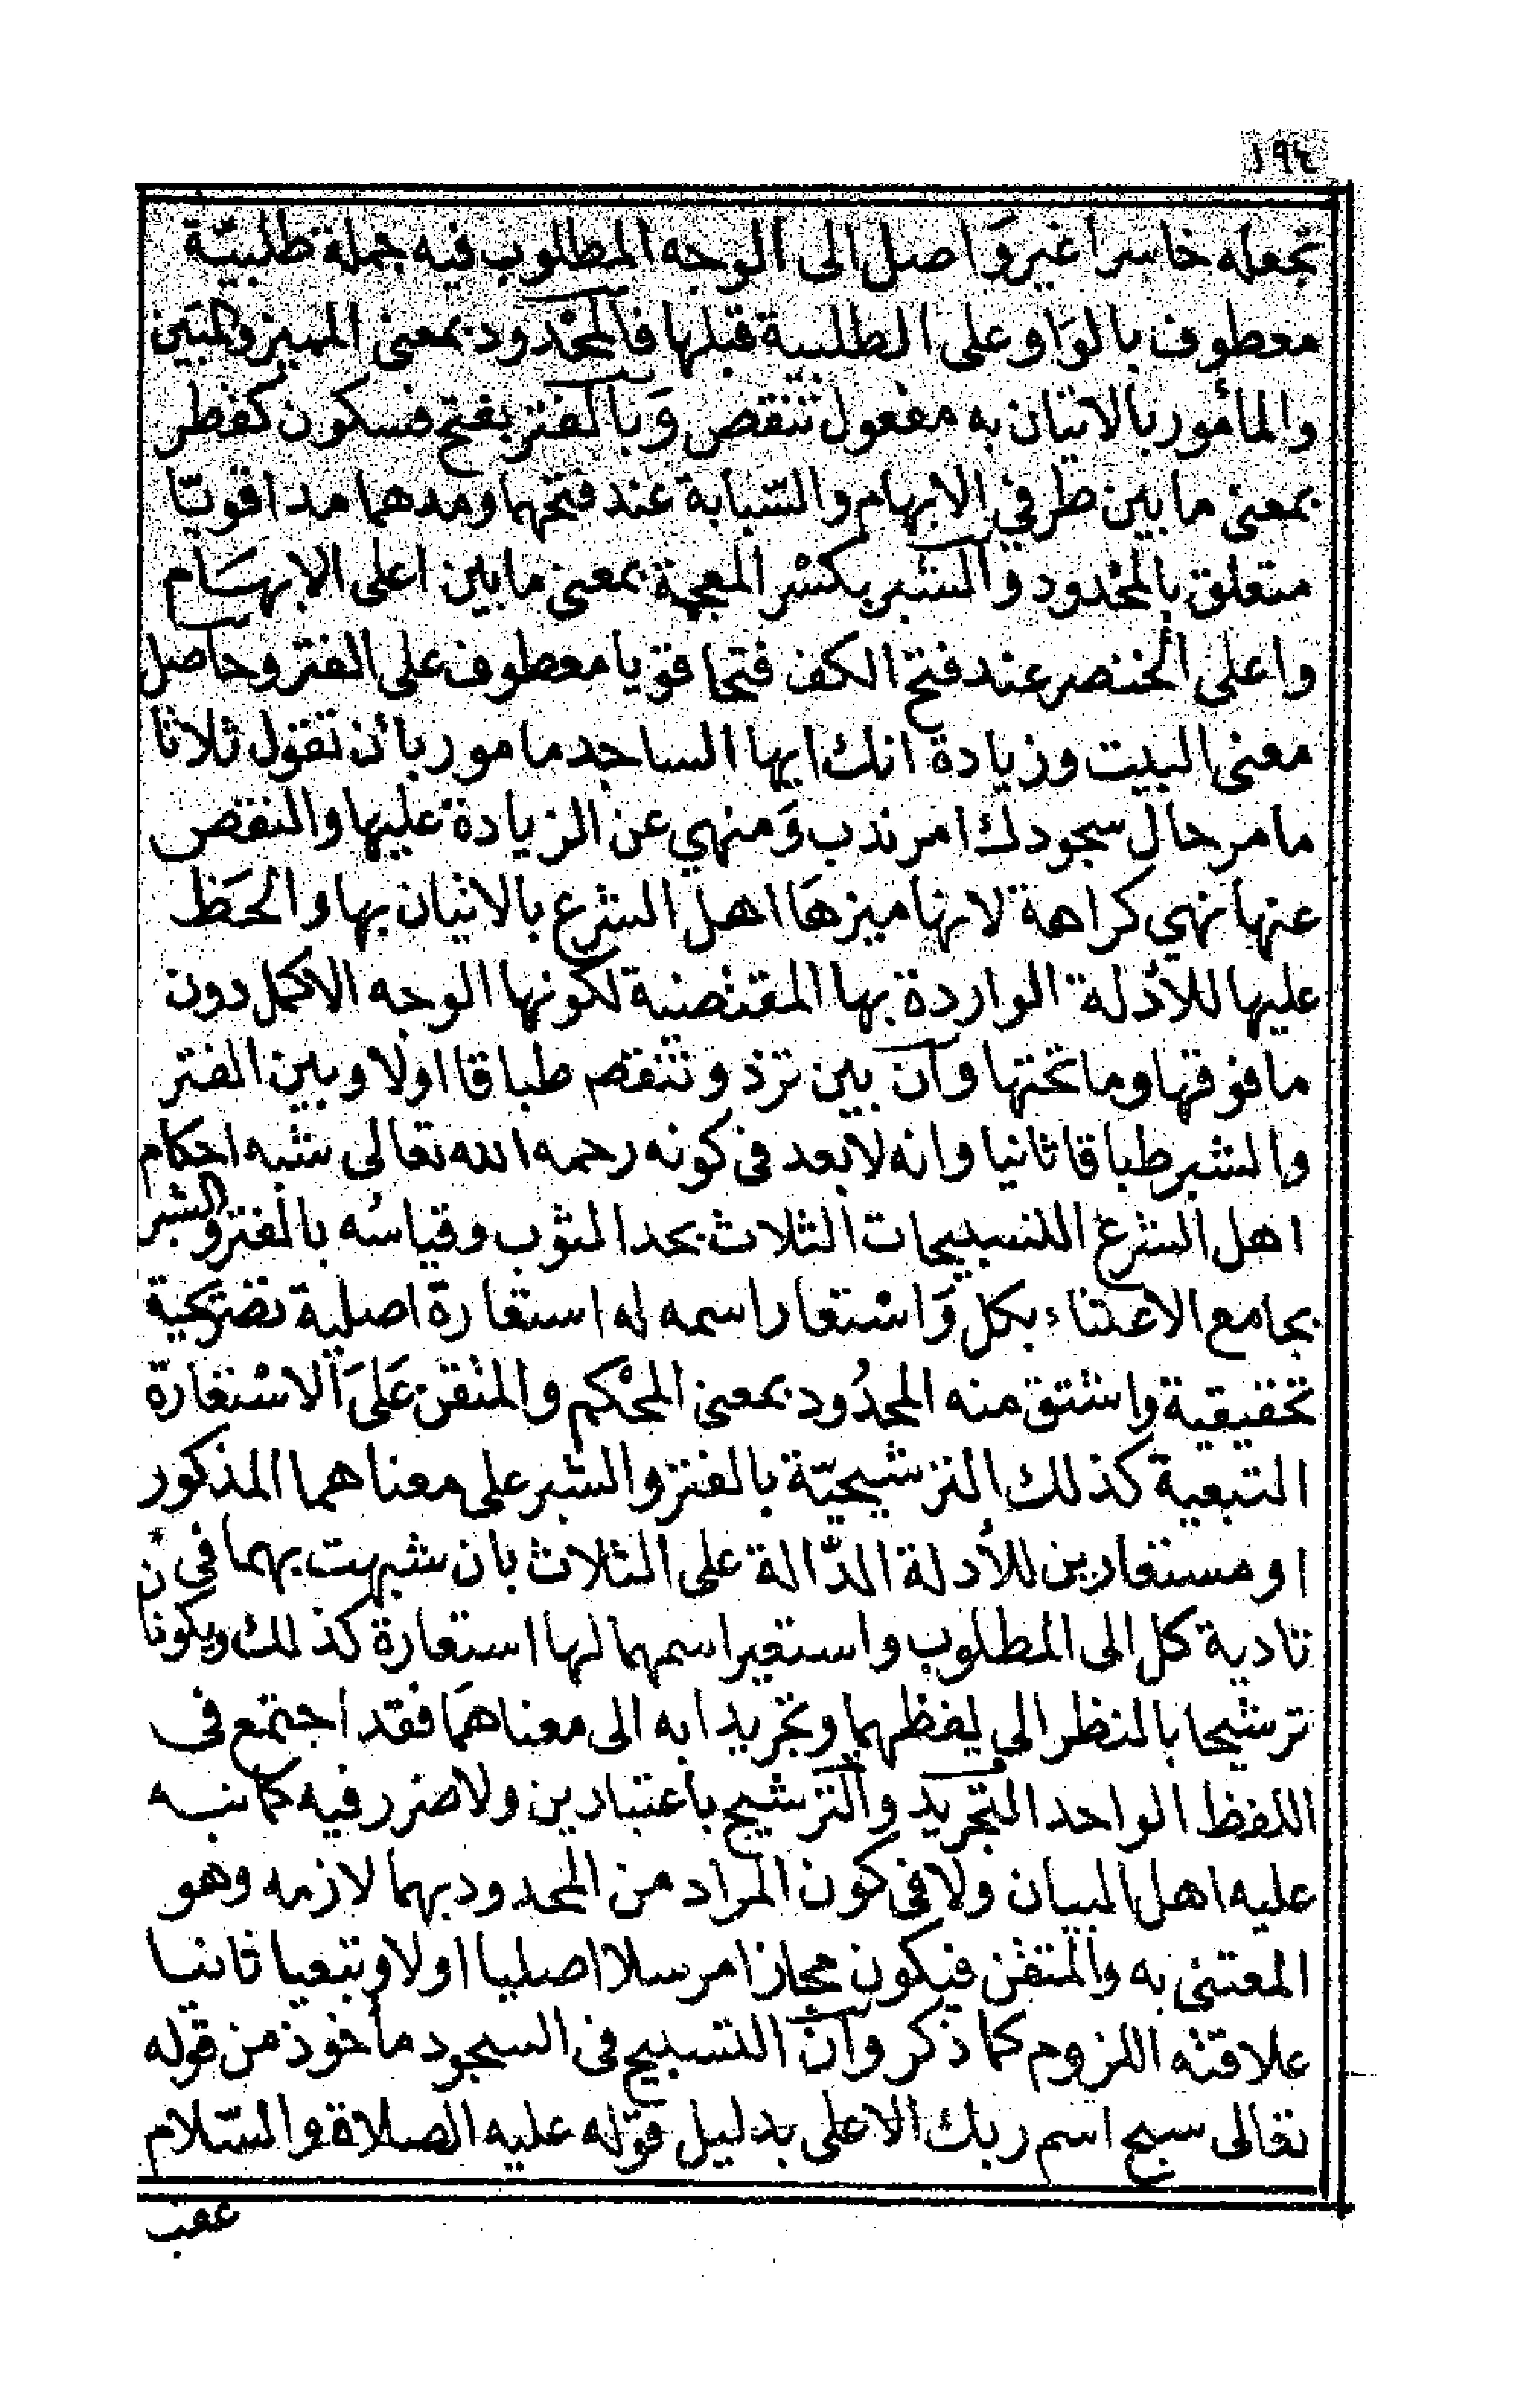 ١٩٤
تجعله خاسرا غير وَاصل الى الوجه المطلوب فيه جملة طلبيّة
معطوف بالوَاو على الطلبية قبلها فالمحْدود بمعنى المميز والمبَين
والمأمور بالاتيان به مفعول تنقص وَبالفتر بفتح فسكون كفطر
بمعنى ما بين طرفي الابهام والسّبابة عند فتحها ومدهما مدا قويّا
متعلق بالمحْدود والشبر بكسْر المعجمة بمعنى ما بين اعلى الابهسَام
واعلى الخنصر عند فتح الكف فتحا قويا معطوف على الفتر وحاصل
معنى البيت وزيادة انك ايها الساجد مامور بائن تقول ثلاثا
ما مر حال سجودك امر ندب وَمنهي عن الزيادة عليها والنقص
عنها نهي كراهة لانها ميزهَا اهل الشرع بالاتيان بها والحَظ
عليها للأدلة الواردة بها المقتضية لكونها الوجه الاكمل دون
ما فوقها وما تحتها وان بين تزد وتنقص طباقا اولا وبين الفتر
والشبر طباقا ثانيا وانه لا بعد فى كونه رحمه الله تعالى شبه احكام
اهل الشرع التسبيحات الثلاث بحد الثوب وقياسُه بالفتر والشبر
بجامع الاعتناء بكل وَاسْتعار اسمه له استعارة اصلية تصرَيحية
تحقيقية واشتق منه المحدُود بمعنى المحْكم والمتْقن عَلىَ الاسْتعارة
التبعية كذلك الترشيحيّة بالفتر والشبر على معناهما المذكور
او مستعارين للأدلة الدّالة على الثلاث بان شبهت بهما فى
تادية كل الى المطلوب واستعير اسمهما لها استعارة كذلك ويكونان
ترشيحا بالنظر الى لفظهما وتجريدا به الى معناهمَا فقد اجتمع فى
اللفظ الواحد التجريد والترشيح باعتبارين ولا ضرر فيه كما نبه
عليه اهل البيان ولا فى كون المراد من المحدود بهما لازمه وهو
المعتنى به والمتقن فيكون مجازا مرسلا اصليا اولا وتبعيا ثانيا
علاقته اللزوم كما ذكر وان التسبيح فى السجود مأخوذ من قوله
تعالى سبح اسم ربك الاعلى بدليل قوله عليه الصلاة والسّلام
عقب